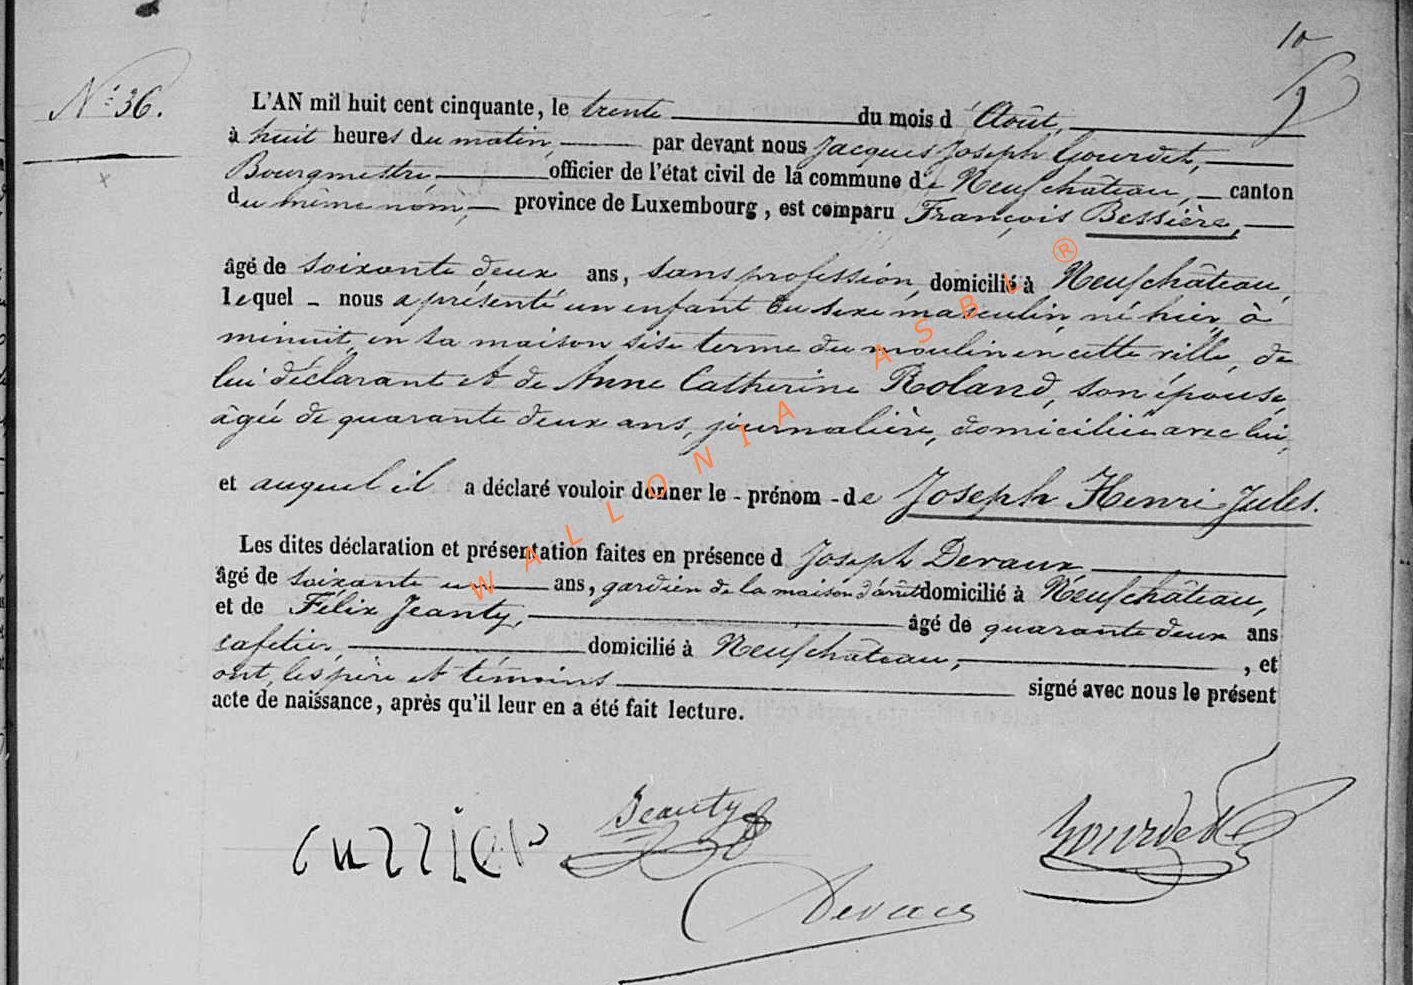 10
Nº 36.
L'AN mil huit cent cinquante, le trente du mois d'Août,
à huit heures du matin, par devant nous Jacques Joseph Gourdet,
Bourgmestre officier de l'état civil de la commune de Neufchâteau, canton
du même nom, province de Luxembourg, est comparu François Bessière,
âgé de soixante deux ans, sans profession, domicilié à Neufchâteau,
lequel nous a présenté un enfant du sexe masculin, né hier, à
minuit, en sa maison sise terme du moulin en cette ville, de
lui déclarant et de Anne Catherine Roland, son épouse,
âgée de quarante deux ans, journalière, domiciliée avec lui,
et auquel il a déclaré vouloir donner le - prénom - de Joseph Henri Jules.
Les dites déclaration et présentation faites en présence d Joseph Devaux
âgé de soixante un ans, gardien de la maison d'arrêt domicilié à Neufchâteau,
et de Félix Jeanty, âgé de quarante deux ans
cafetier, domicilié à Neufchâteau, , et
ont, les père et témoins signé avec nous le présent
acte de naissance, après qu'il leur en a été fait lecture.
Jeanty
Gourdet
Devaux
WALLONIA ASBL ®